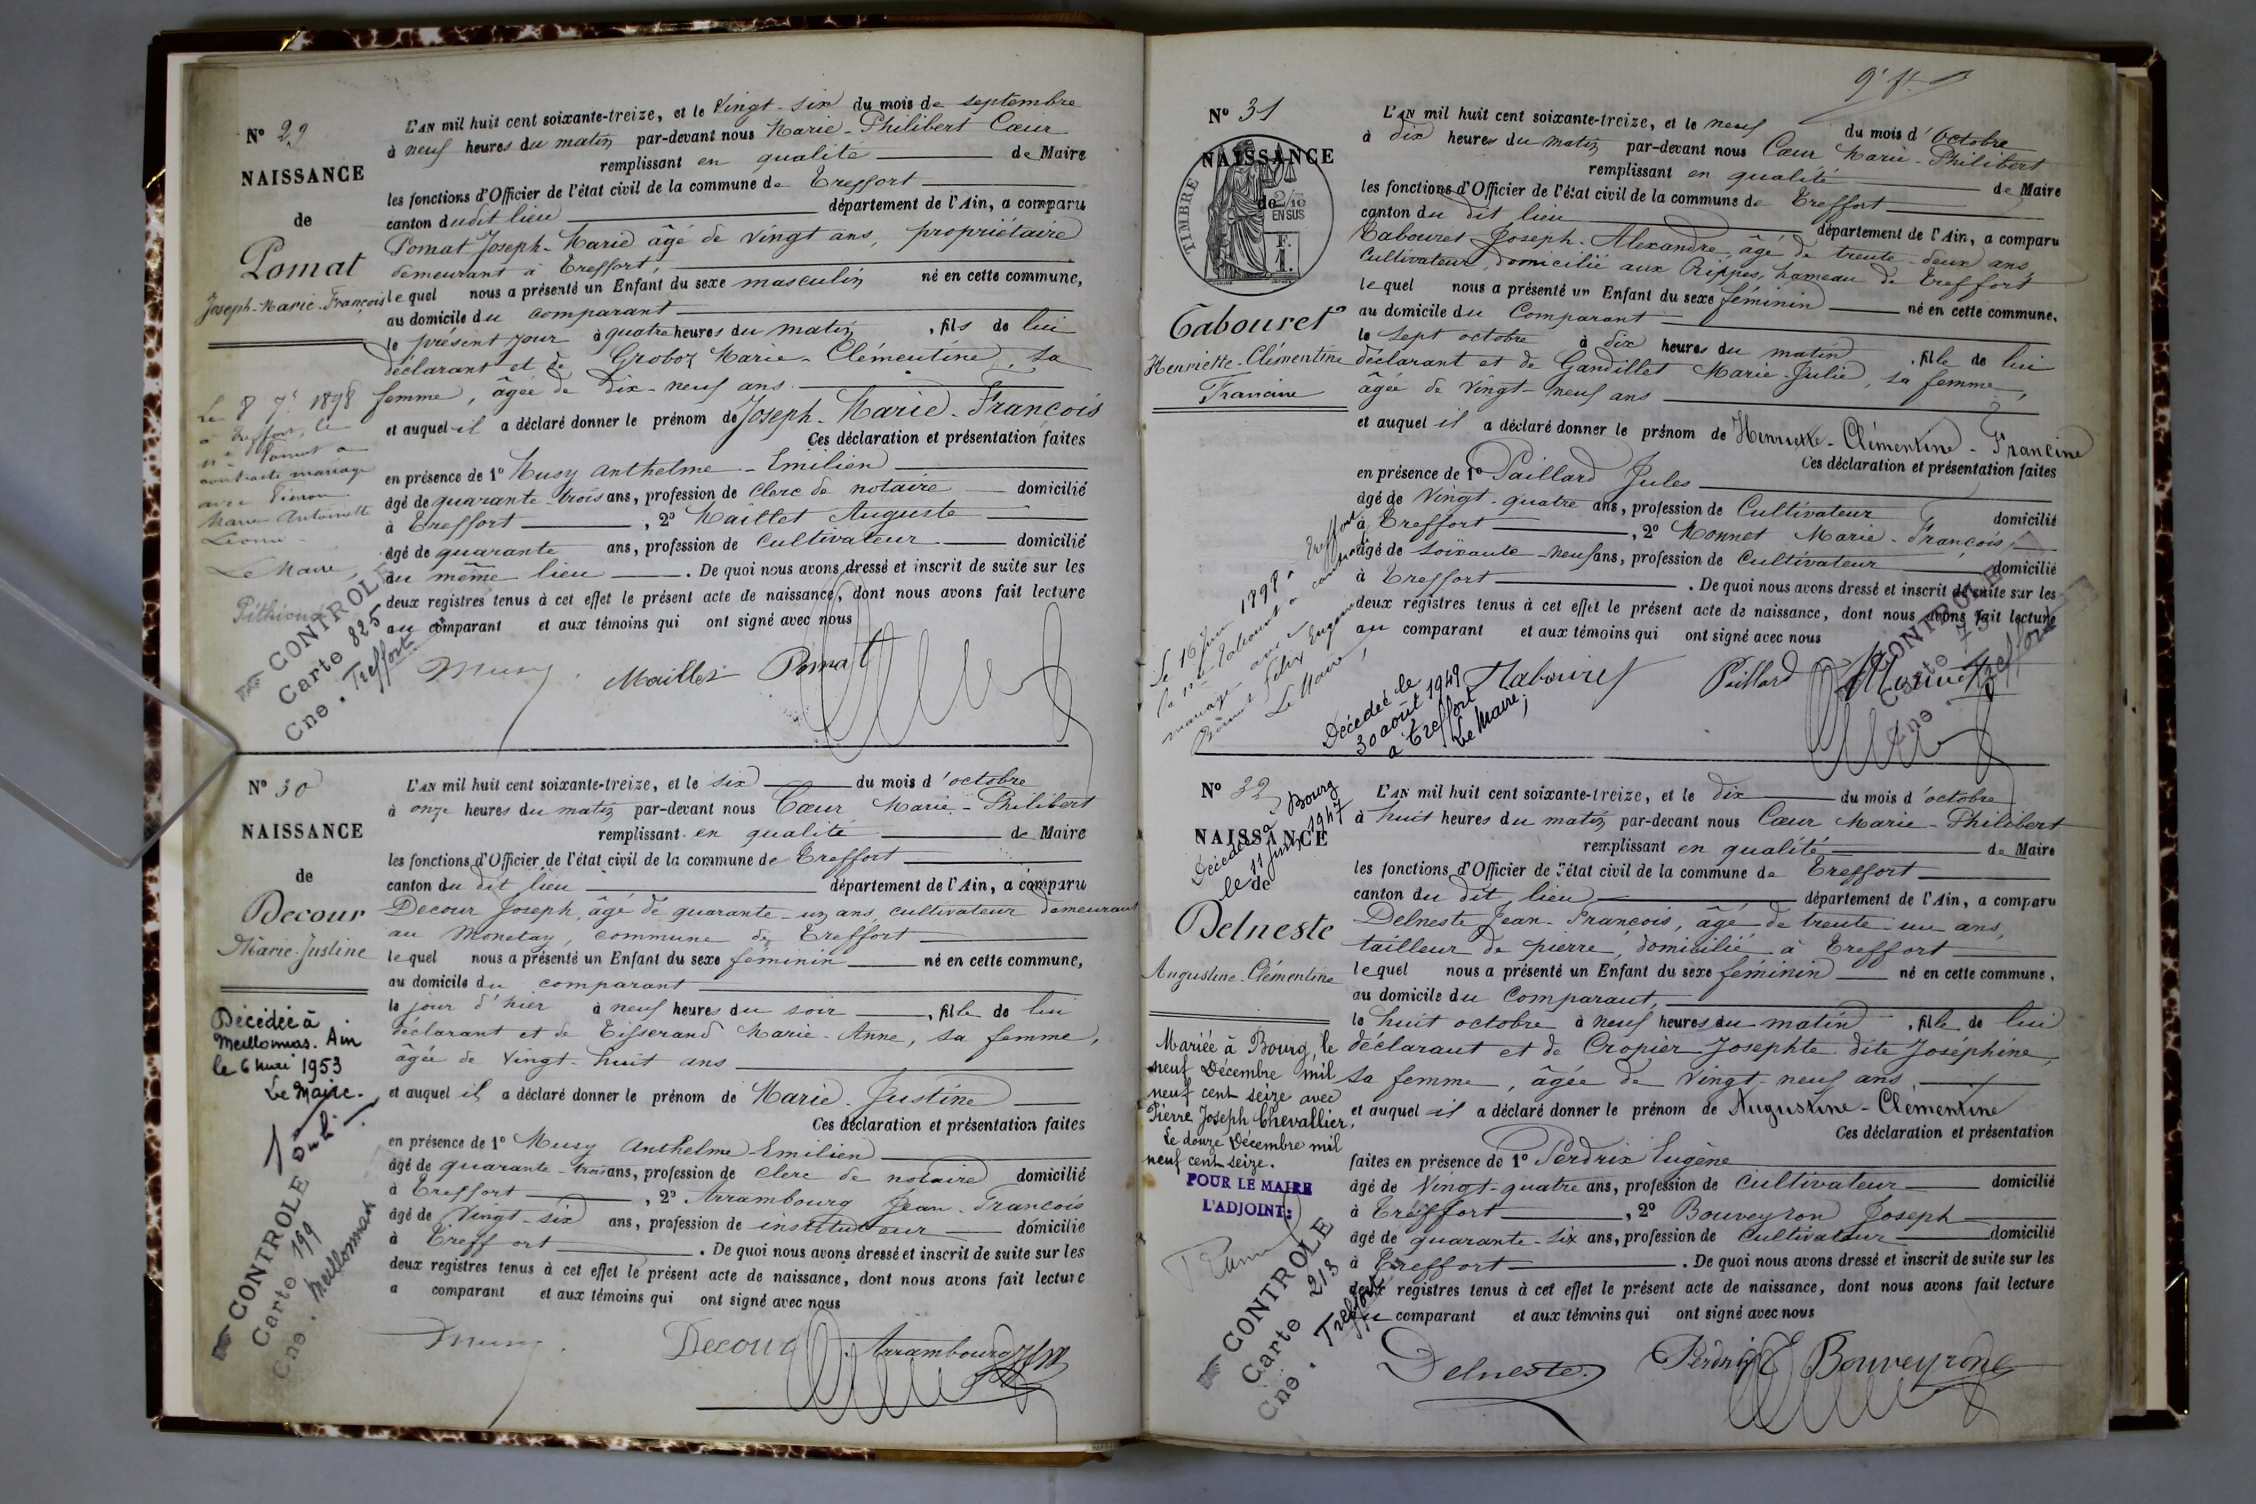 N° 29
NAISSANCE
de
Pomat
Joseph-Marie-François
L'AN mil huit cent soixante-treize, et le Vingt-six du mois de septembre
à neuf heures du matin par-devant nous Marie-Philibert Cœur
remplissant en qualité de Maire
les fonctions d'Officier de l'état civil de la commune de Treffort
canton dudit lieu département de l'Ain, a comparu
Pomat Joseph-Marie âgé de vingt ans, propriétaire
demeurant à Treffort,
lequel nous a présenté un Enfant du sexe masculin né en cette commune,
au domicile du comparant
le présent jour à quatre heures du matin, fils de lui
déclarant et de Groboz Marie-Clémentine, sa
femme, âgée de dix-neuf ans
et auquel il a déclaré donner le prénom de Joseph-Marie-François
Ces déclaration et présentation faites
en présence de 1° Musy Anthelme-Emilien
âgé de quarante-trois ans, profession de clerc de notaire domicilié
à Treffort, 2° Maillet Auguste
âgé de quarante ans, profession de Cultivateur domicilié
au même lieu. De quoi nous avons dressé et inscrit de suite sur les
deux registres tenus à cet effet le présent acte de naissance, dont nous avons fait lecture
au comparant et aux témoins qui ont signé avec nous
Musy Maillet Pomat
Le 8 7e 1898
à Treffort, le
n° Pomat a
contracté mariage
avec
Marie Antoinette
Le Maire,
CONTROLE
Carte 825
Cne. Treffort
N° 30
NAISSANCE
de
Decour
Marie-Justine
Décédée à
Meillonnas. Ain
le 6 mai 1953
Le Maire.
CONTROLE
Carte 199
Cne. Meillonnas
L'AN mil huit cent soixante-treize, et le six du mois d'octobre
à onze heures du matin par-devant nous Cœur Marie-Philibert
remplissant en qualité de Maire
les fonctions d'Officier de l'état civil de la commune de Treffort
canton du dit lieu département de l'Ain, a comparu
Decour Joseph, âgé de quarante-un ans, cultivateur demeurant
au Monetay, commune de Treffort
lequel nous a présenté un Enfant du sexe féminin né en cette commune,
au domicile du comparant
le jour d'hier à neuf heures du soir, fille de lui
déclarant et de Tisserand Marie-Anne, sa femme,
âgée de vingt-huit ans
et auquel il a déclaré donner le prénom de Marie-Justine
Ces déclaration et présentation faites
en présence de 1° Musy Anthelme-Emilien
âgé de quarante-trois ans, profession de clerc de notaire domicilié
à Treffort, 2° Arrambourg Jean-François
âgé de Vingt-six ans, profession de instituteur domicilié
à Treffort. De quoi nous avons dressé et inscrit de suite sur les
deux registres tenus à cet effet le présent acte de naissance, dont nous avons fait lecture
a comparant et aux témoins qui ont signé avec nous
Musy Decour Arrambourg
N° 31
NAISSANCE
de
TIMBRE
2/10
EN SUS
F.
1.
Tabouret
Henriette-Clémentine
Francine
L'AN mil huit cent soixante-treize, et le neuf du mois d'Octobre
à dix heures du matin par-devant nous Cœur Marie-Philibert
remplissant en qualité de Maire
les fonctions d'Officier de l'état civil de la commune de Treffort
canton du dit lieu département de l'Ain, a comparu
Tabouret Joseph-Alexandre, âgé de trente-deux ans,
Cultivateur, domicilié aux Rippes, hameau de Treffort
lequel nous a présenté un Enfant du sexe féminin né en cette commune,
au domicile du Comparant
le sept octobre à dix heures du matin, fille de lui
déclarant et de Gandillet Marie-Julie, sa femme,
âgée de vingt-neuf ans
et auquel il a déclaré donner le prénom de Henriette-Clémentine-Francine
Ces déclaration et présentation faites
en présence de 1° Paillard Jules
âgé de Vingt-quatre ans, profession de Cultivateur domicilié
à Treffort, 2° Monnet Marie-François,
âgé de soixante-neuf ans, profession de Cultivateur domicilié
à Treffort. De quoi nous avons dressé et inscrit de suite sur les
deux registres tenus à cet effet le présent acte de naissance, dont nous avons fait lecture
au comparant et aux témoins qui ont signé avec nous
Le 16 1898, à Treffort
la n° Tabouret a contracté
mariage avec
Félix Eugène
Le Maire,
Décédée le
30 août 1949
à Treffort
Le Maire,
Tabouret Paillard Monnet
CONTROLE
Carte
Cne Treffort
N° 32
NAISSANCE
de
Décédée à Bourg
le 11 juin 1947
Delneste
Augustine-Clémentine
Mariée à Bourg, le
neuf Décembre mil
neuf cent seize avec
Pierre Joseph Chevallier,
Le douze Décembre mil
neuf cent seize.
POUR LE MAIRE
L'ADJOINT:
CONTROLE
Carte 213
Cne. Treffort
L'AN mil huit cent soixante-treize, et le dix du mois d'octobre
à huit heures du matin par-devant nous Cœur Marie-Philibert
remplissant en qualité de Maire
les fonctions d'Officier de l'état civil de la commune de Treffort
canton du dit lieu département de l'Ain, a comparu
Delneste Jean-François, âgé de trente-un ans,
tailleur de pierre, domicilié à Treffort
lequel nous a présenté un Enfant du sexe féminin né en cette commune,
au domicile du Comparant,
le huit octobre à neuf heures du matin, fille de lui
déclarant et de Cropier Josephte dite Joséphine,
sa femme, âgée de vingt-neuf ans,
et auquel il a déclaré donner le prénom de Augustine-Clémentine
Ces déclaration et présentation
faites en présence de 1° Perdrix Eugène
âgé de Vingt-quatre ans, profession de Cultivateur domicilié
à Treffort, 2° Bouveyron Joseph
âgé de quarante-six ans, profession de Cultivateur domicilié
à Treffort. De quoi nous avons dressé et inscrit de suite sur les
deux registres tenus à cet effet le présent acte de naissance, dont nous avons fait lecture
au comparant et aux témoins qui ont signé avec nous
Delneste Perdrix E Bouveyron